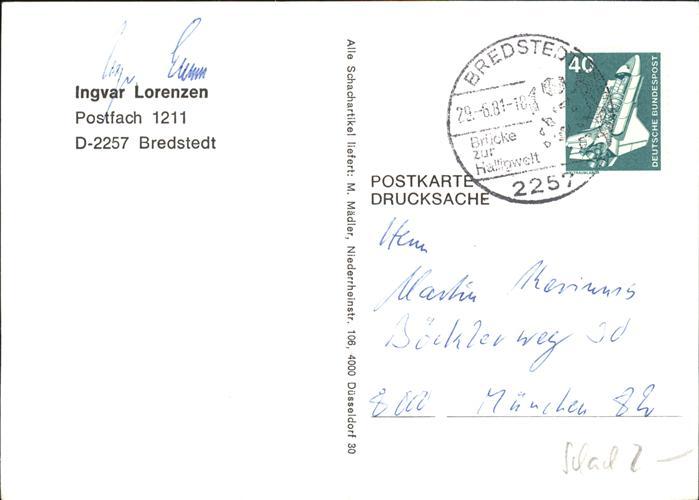 Ingvar Lorenzen
Postfach 1211
D-2257 Bredstedt
Alle Schachartikel liefert: M. Mädler, Niederrheinstr. 106, 4000 Düsseldorf 30
BREDSTEDT
29.-6.81-18
Brücke
zur
Halligwelt
2257
40
DEUTSCHE BUNDESPOST
POSTKARTE
DRUCKSACHE
Herrn
Martin
Böcklerweg 30
8000 München 82
Schach 2-